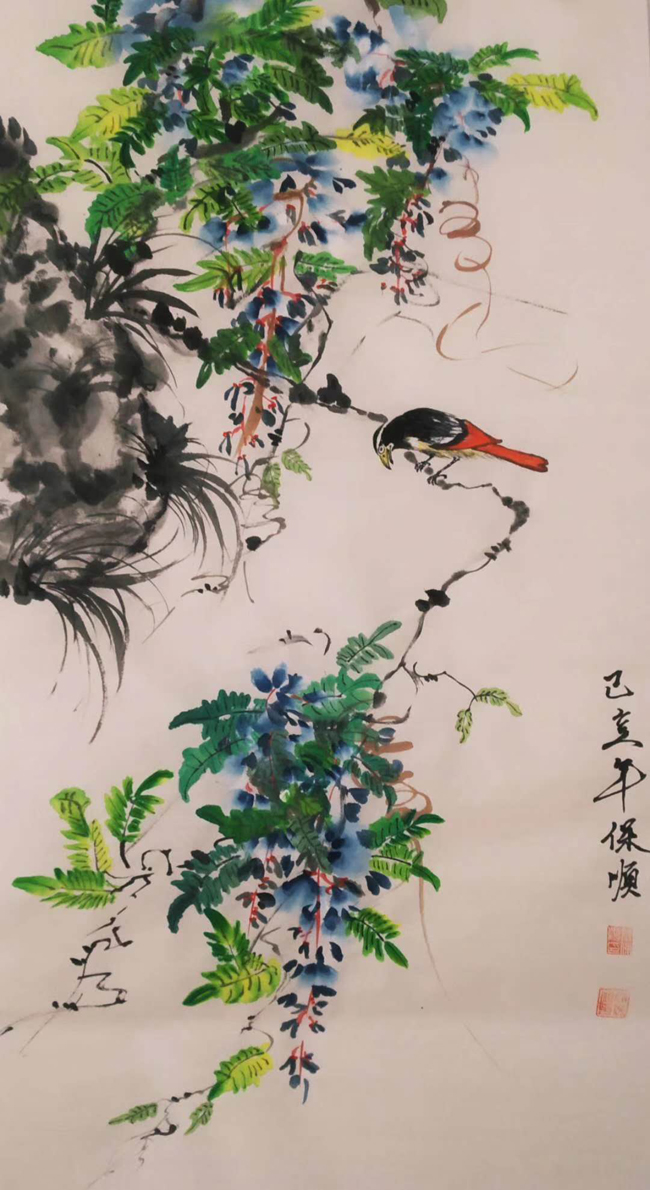 己亥年保順